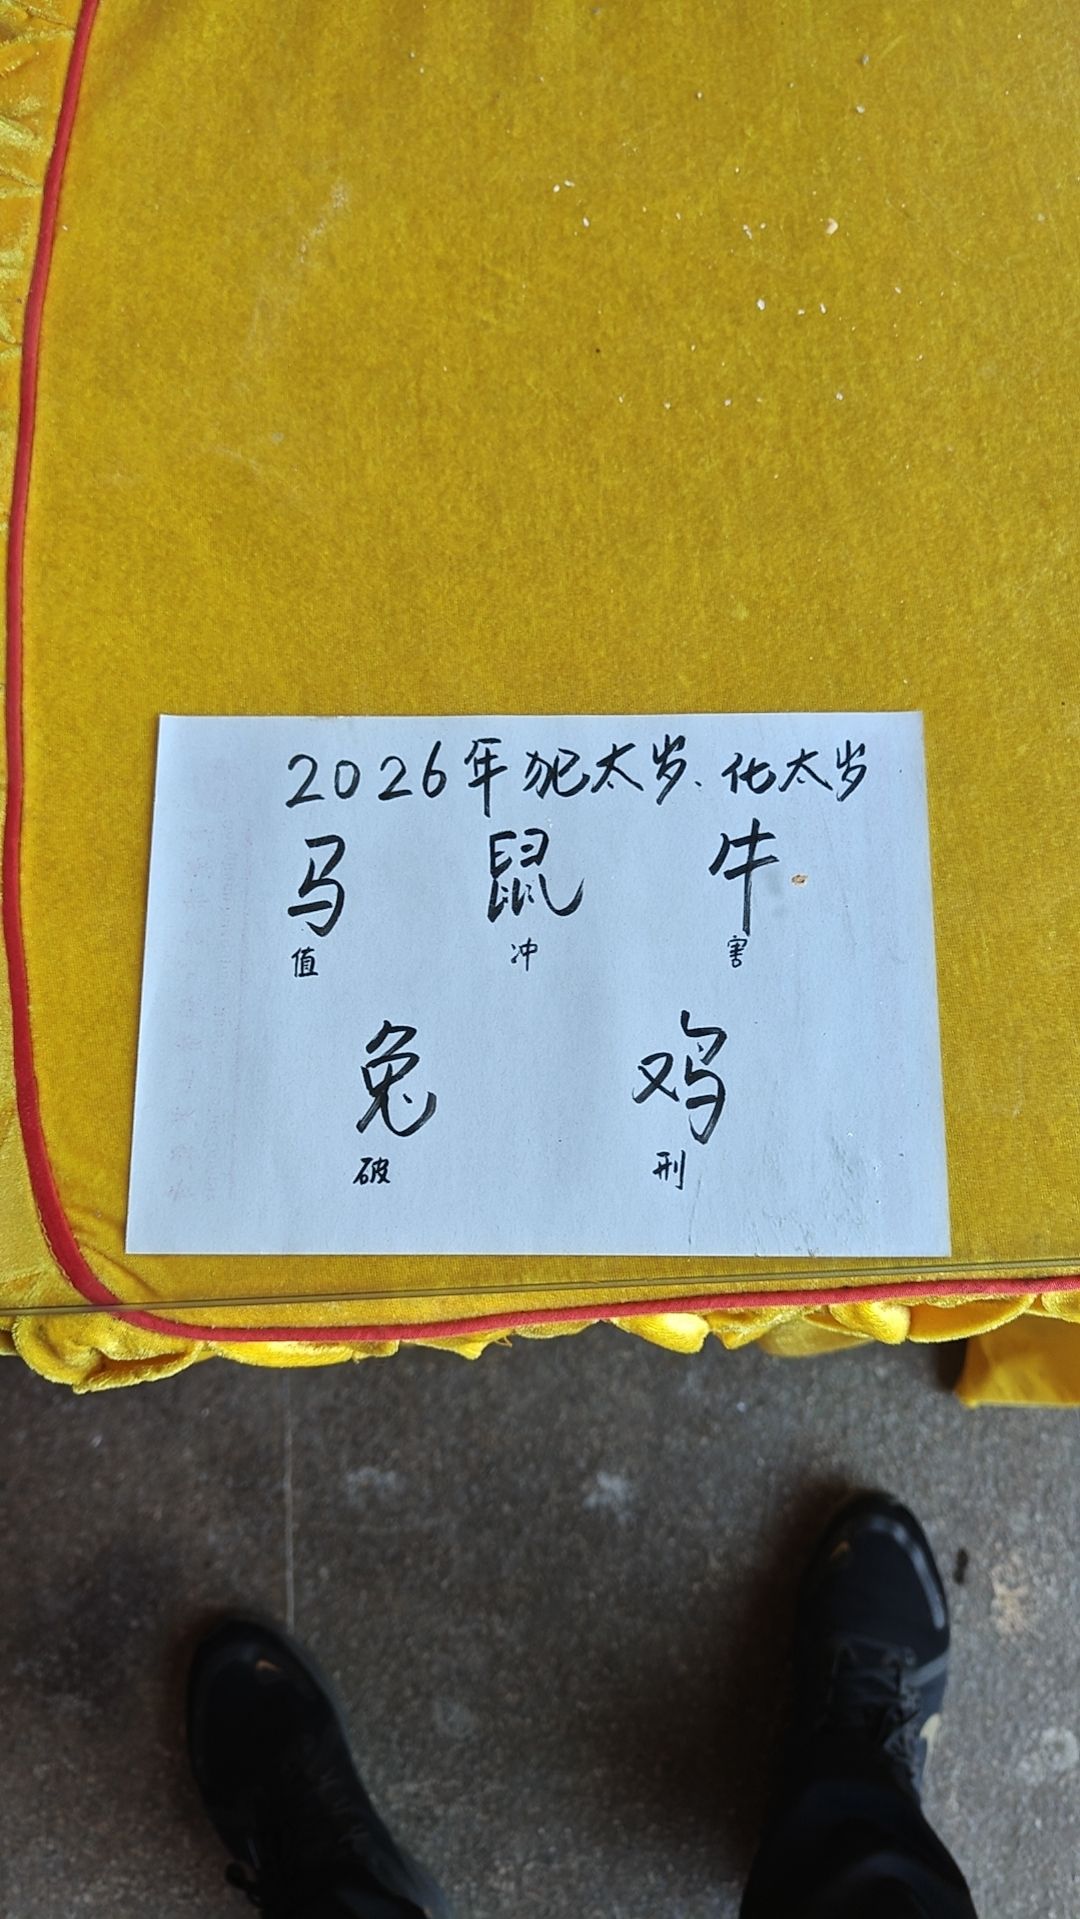 2026年犯太岁、化太岁
马 鼠 牛
值 冲 害
兔 鸡
破 刑